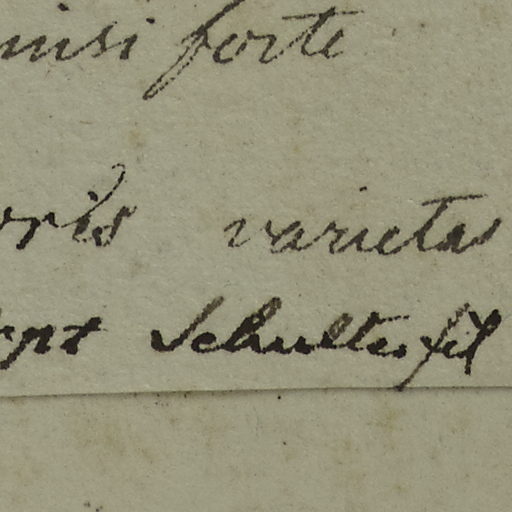 nisi forte
varietas
Schultes fil